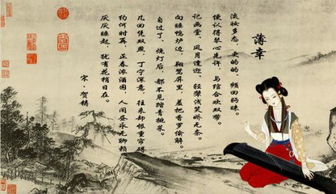 薄幸
淡妆多态,更的的、频回眄睐。
便认得琴心先许,与绾合欢双带。
记画堂、风月逢迎,轻颦浅笑娇无奈。
向睡鸭炉边,翔鸳屏里,羞把香罗偷解。
自过了、烧灯后,都不见踏青挑菜。
几回凭双燕,丁宁深意,往来却恨重帘碍。
约何时再,正春浓酒困,人闲昼永无聊赖。
厌厌睡起,犹有花梢日在。
宋·贺铸